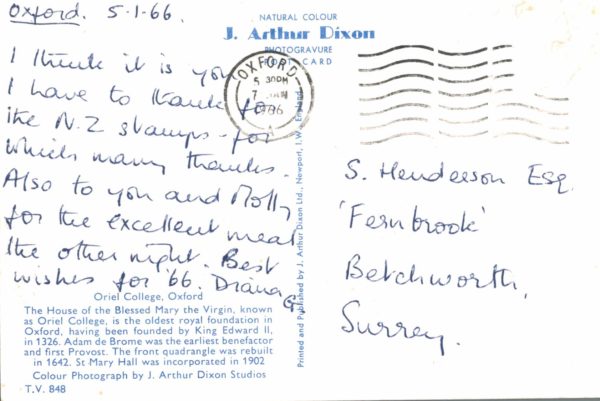 Oxford. 5-1-66.
NATURAL COLOUR
J. Arthur Dixon
PHOTOGRAVURE
POST CARD
OXFORD
I think it is you
I have to thank for
the N.Z stamps - for
which many thanks.
Also to you and Molly
for the excellent meal
the other night. Best
wishes for '66. Diana
S. Henderson Esq.
'Fernbrook'
Betchworth,
Surrey.
Oriel College, Oxford
The House of the Blessed Mary the Virgin, known
as Oriel College, is the oldest royal foundation in
Oxford, having been founded by King Edward II,
in 1326. Adam de Brome was the earliest benefactor
and first Provost. The front quadrangle was rebuilt
in 1642. St Mary Hall was incorporated in 1902
Colour Photograph by J. Arthur Dixon Studios
T.V. 848
Printed and Published by J. Arthur Dixon Ltd., Newport, I.W., England